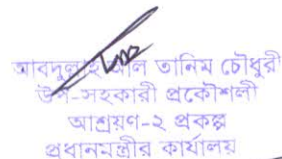 আবদুল্লাহ আল তানিম চৌধুরী
উপ-সহকারী প্রকৌশলী
আশ্রয়ণ-২ প্রকল্প
প্রধানমন্ত্রীর কার্যালয়